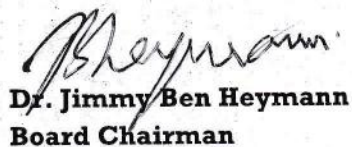 BHeymann
Dr. Jimmy Ben Heymann
Board Chairman